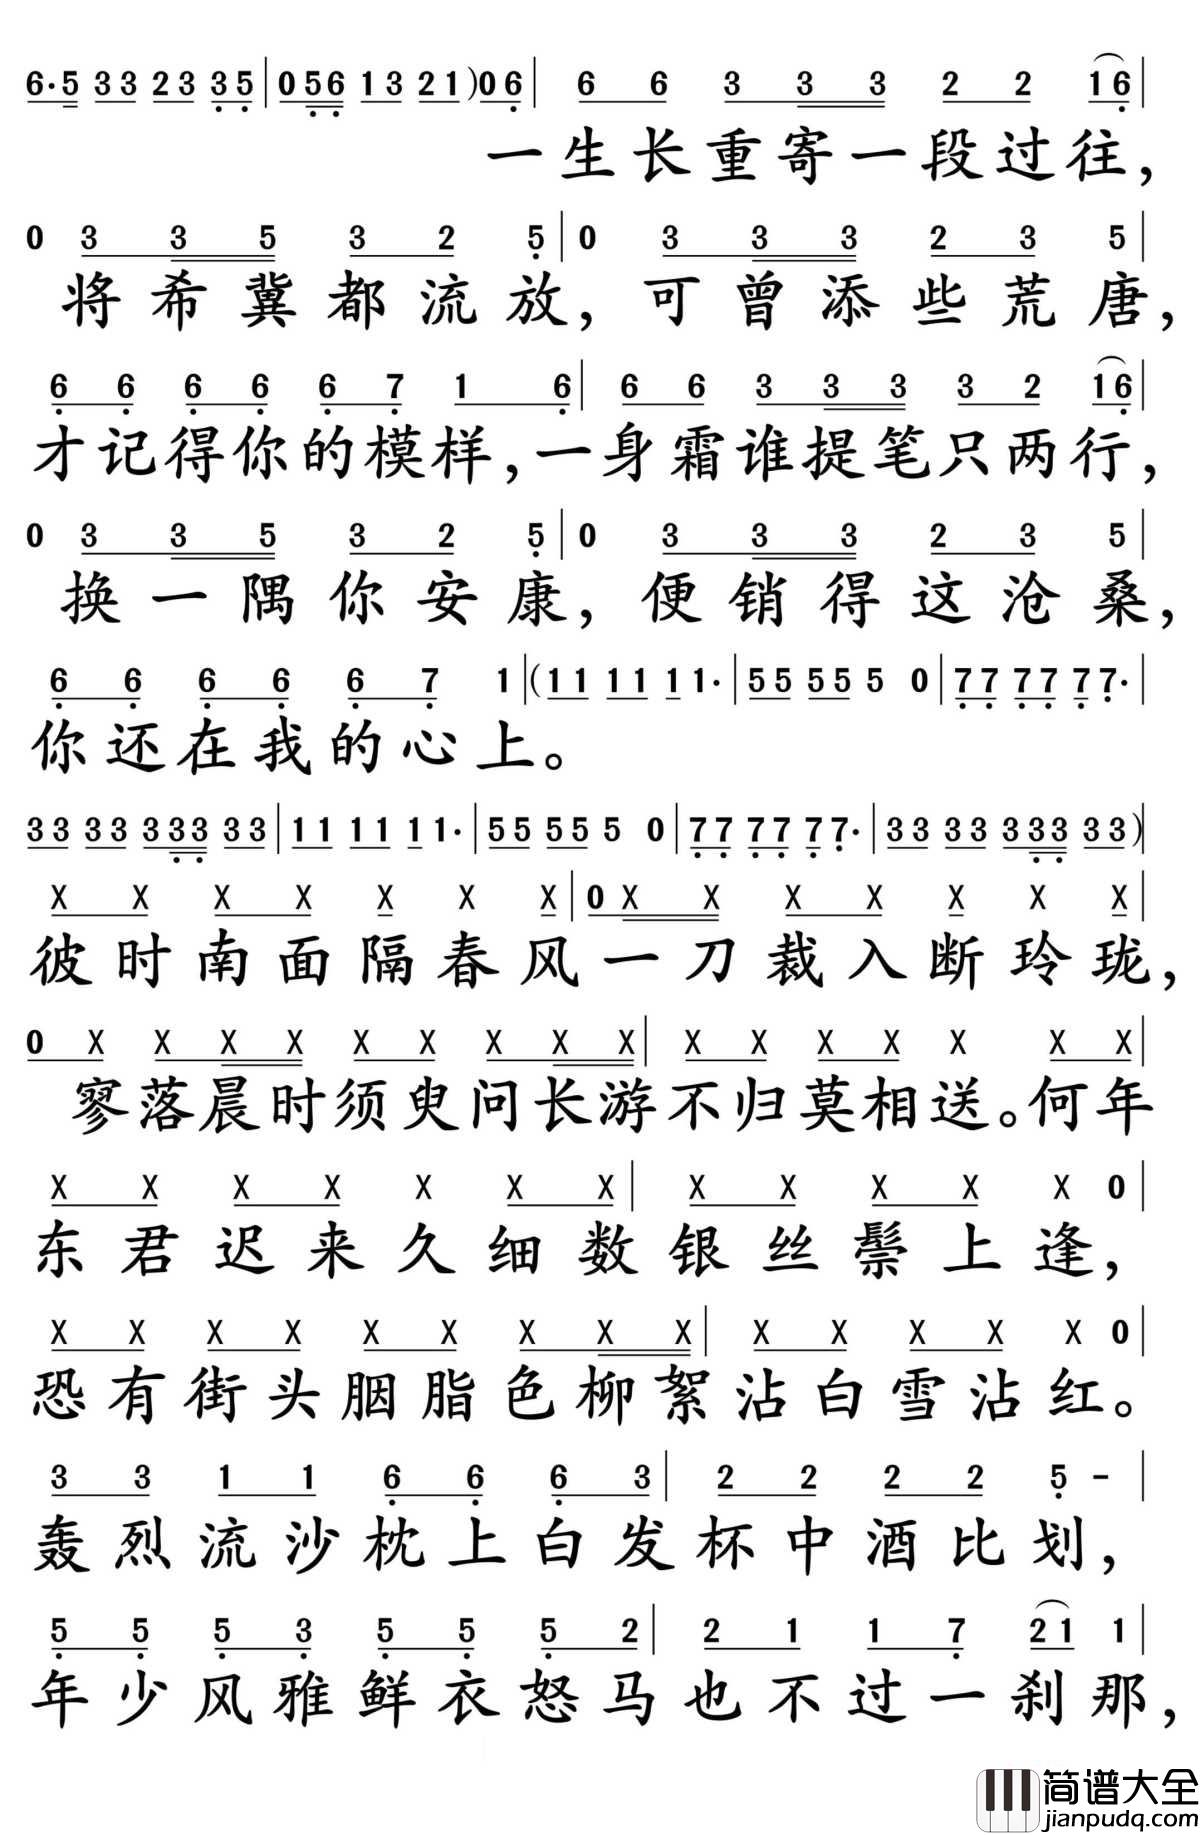 6·5 33 23 35|056 13 21)06| 6 6 3 3 3 2 2 16|
一生长重寄一段过往，
0 3 3 5 3 2 5|0 3 3 3 2 3 5|
将希冀都流放，可曾添些荒唐，
6 6 6 6 6 7 1 6| 6 6 3 3 3 3 2 16|
才记得你的模样，一身霜谁提笔只两行，
0 3 3 5 3 2 5|0 3 3 3 2 3 5|
换一隅你安康，便销得这沧桑，
6 6 6 6 6 7 1|(11 11 1 1·|55 55 5 0|77 77 7 7·|
你还在我的心上。
33 33 333 33|11 11 1 1·|55 55 5 0|77 77 7 7·|33 33 333 33)|
X X X X X X X|0 X X X X X X X|
彼时南面隔春风一刀裁入断玲珑，
0 X X X X X X X X X|X X X X X X X|
寥落晨时须臾问长游不归莫相送。何年
X X X X X X X|X X X X X 0|
东君迟来久细数银丝鬃上逢，
X X X X X X X X X|X X X X X 0|
恐有街头胭脂色柳絮沾白雪沾红。
3 3 1 1 6 6 6 3|2 2 2 2 5 -|
轰烈流沙枕上白发杯中酒比划，
5 5 5 3 5 5 5 2|2 1 1 7 21 1|
年少风雅鲜衣怒马也不过一刹那，
简谱大全
jianpudq.com